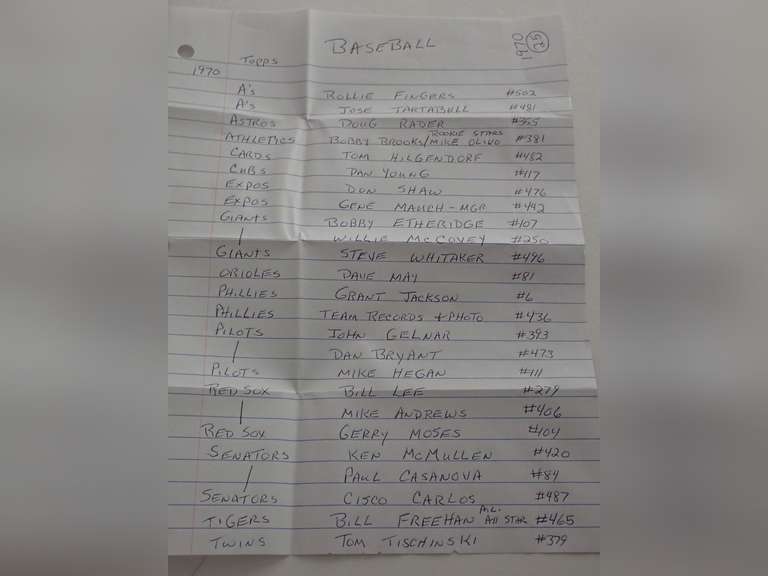 BASEBALL
1970 25
TOPPS
1970
A's ROLLIE FINGERS #502
A's JOSE TARTABULL #481
ASTROS DOUG RADER #355
ATHLETICS BOBBY BROOKS/MIKE OLIVO ROOKIE STARS #381
CARDS TOM HILGENDORF #482
CUBS DAN YOUNG #117
EXPOS DON SHAW #476
EXPOS GENE MAUCH-MGR #442
GIANTS BOBBY ETHERIDGE #107
WILLIE McCOVEY #250
GIANTS STEVE WHITAKER #496
ORIOLES DAVE MAY #81
PHILLIES GRANT JACKSON #6
PHILLIES TEAM RECORDS + PHOTO #436
PILOTS JOHN GELNAR #393
DAN BRYANT #473
PILOTS MIKE HEGAN #111
RED SOX BILL LEE #279
MIKE ANDREWS #406
RED SOX GERRY MOSES #104
SENATORS KEN McMULLEN #420
PAUL CASANOVA #84
SENATORS CISCO CARLOS #487
TIGERS BILL FREEHAN A.L. All STAR #465
TWINS TOM TISCHINSKI #379